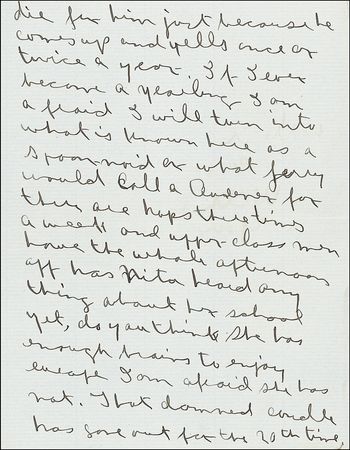 die for him just because he
comes up and yells once or
twice a year. If I ever
become a yearling I am
afraid I will turn into
what is known here as a
spoonoid or what
would call a for
there are hops three times
a week and upper-class men
have the whole afternoon
off has Nita heard any
thing about her school
yet, do you think she has
enough brains to enjoy
I am afraid she has
not. That damned candle
has gone out for the 20th time,